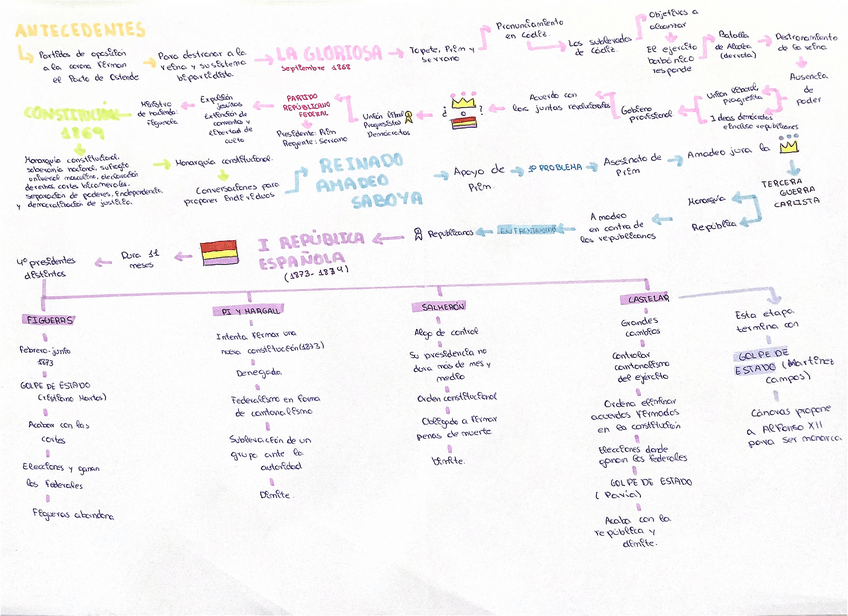 ANTECEDENTES
Partidos de oposición
a la corona firman
el Pacto de Ostende
Para destronar a la
reina y su sistema
bipartidista.
LA GLORIOSA
Septiembre 1868
Topete, Prim y
Serrano
Pronunciamiento
en Cádiz.
Los sublevados
de Cádiz.
Objetivos a
alcanzar
El ejército
borbónico
responde
Batalla
de Alcolea
(derrota)
Destronamiento
de la reina
Ausencia
de
poder
Unión liberal y
progresista
Ideas demócratas
e incluso republicanas
Gobierno
provisional
Acuerdo con
las juntas revolucionarias
¿ ?
Unión liberal
Progresistas
Demócratas
PARTIDO
REPUBLICANO
FEDERAL
Presidente: Prim
Regente: Serrano
Expulsión
jesuitas
Extensión de
comercio y
libertad de
culto
Ministro
de hacienda:
Figuerola
CONSTITUCIÓN
1869
Monarquía constitucional,
soberanía nacional, sufragio
universal masculino, declaración
derechos, cortes bicamerales,
separación de poderes, independencia
y democratización de justicia.
Monarquía constitucional.
Conversaciones para
proponer individuos
REINADO
AMADEO
SABOYA
Apoyo de
Prim
1º PROBLEMA
Asesinato de
Prim
Amadeo jura la
TERCERA
GUERRA
CARLISTA
Monarquía
República
Amadeo
en contra de
los republicanos
ENFRENTADOS
Republicanos
I REPÚBLICA
ESPAÑOLA
(1873-1874)
Dura 11
meses
4º presidentes
distintos
FIGUERAS
Febrero-junio
1873
GOLPE DE ESTADO
(Cristiano Martos)
Acabar con las
cortes
Elecciones y ganan
los federales
Figueras abandona
PI Y MARGALL
Intenta firmar una
nueva constitución (1873)
Denegada
Federalismo en forma
de cantonalismo
Sublevación de un
grupo ante la
autoridad
Dimite.
SALMERÓN
Algo de control
Su presidencia no
dura más de mes y
medio
Orden constitucional
Obligado a firmar
penas de muerte
Dimite.
CASTELAR
Grandes
cambios
Controlar
cantonalismo
del ejército
Ordena eliminar
acuerdos firmados
en la constitución
Elecciones donde
ganan los federales
GOLPE DE ESTADO
(Pavía)
Acaba con la
república y
dimite.
Esta etapa
termina con
GOLPE DE
ESTADO (Martínez
Campos)
Cánovas propone
a Alfonso XII
para ser monarca.